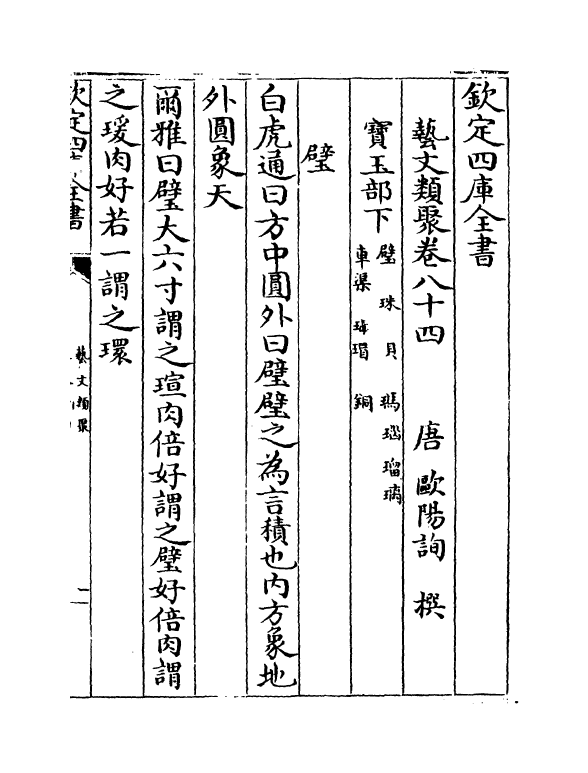 欽定四庫全書
藝文類聚卷八十四 唐 歐陽詢 撰
寶玉部下 璧 珠 貝 瑪瑙 瑠璃
車渠 瑇瑁 銅
璧
白虎通曰方中圓外曰璧璧之為言積也内方象地
外圓象天
爾雅曰璧大六寸謂之瑄肉倍好謂之璧好倍肉謂
之瑗肉好若一謂之環
欽定四庫全書
藝文類聚
二